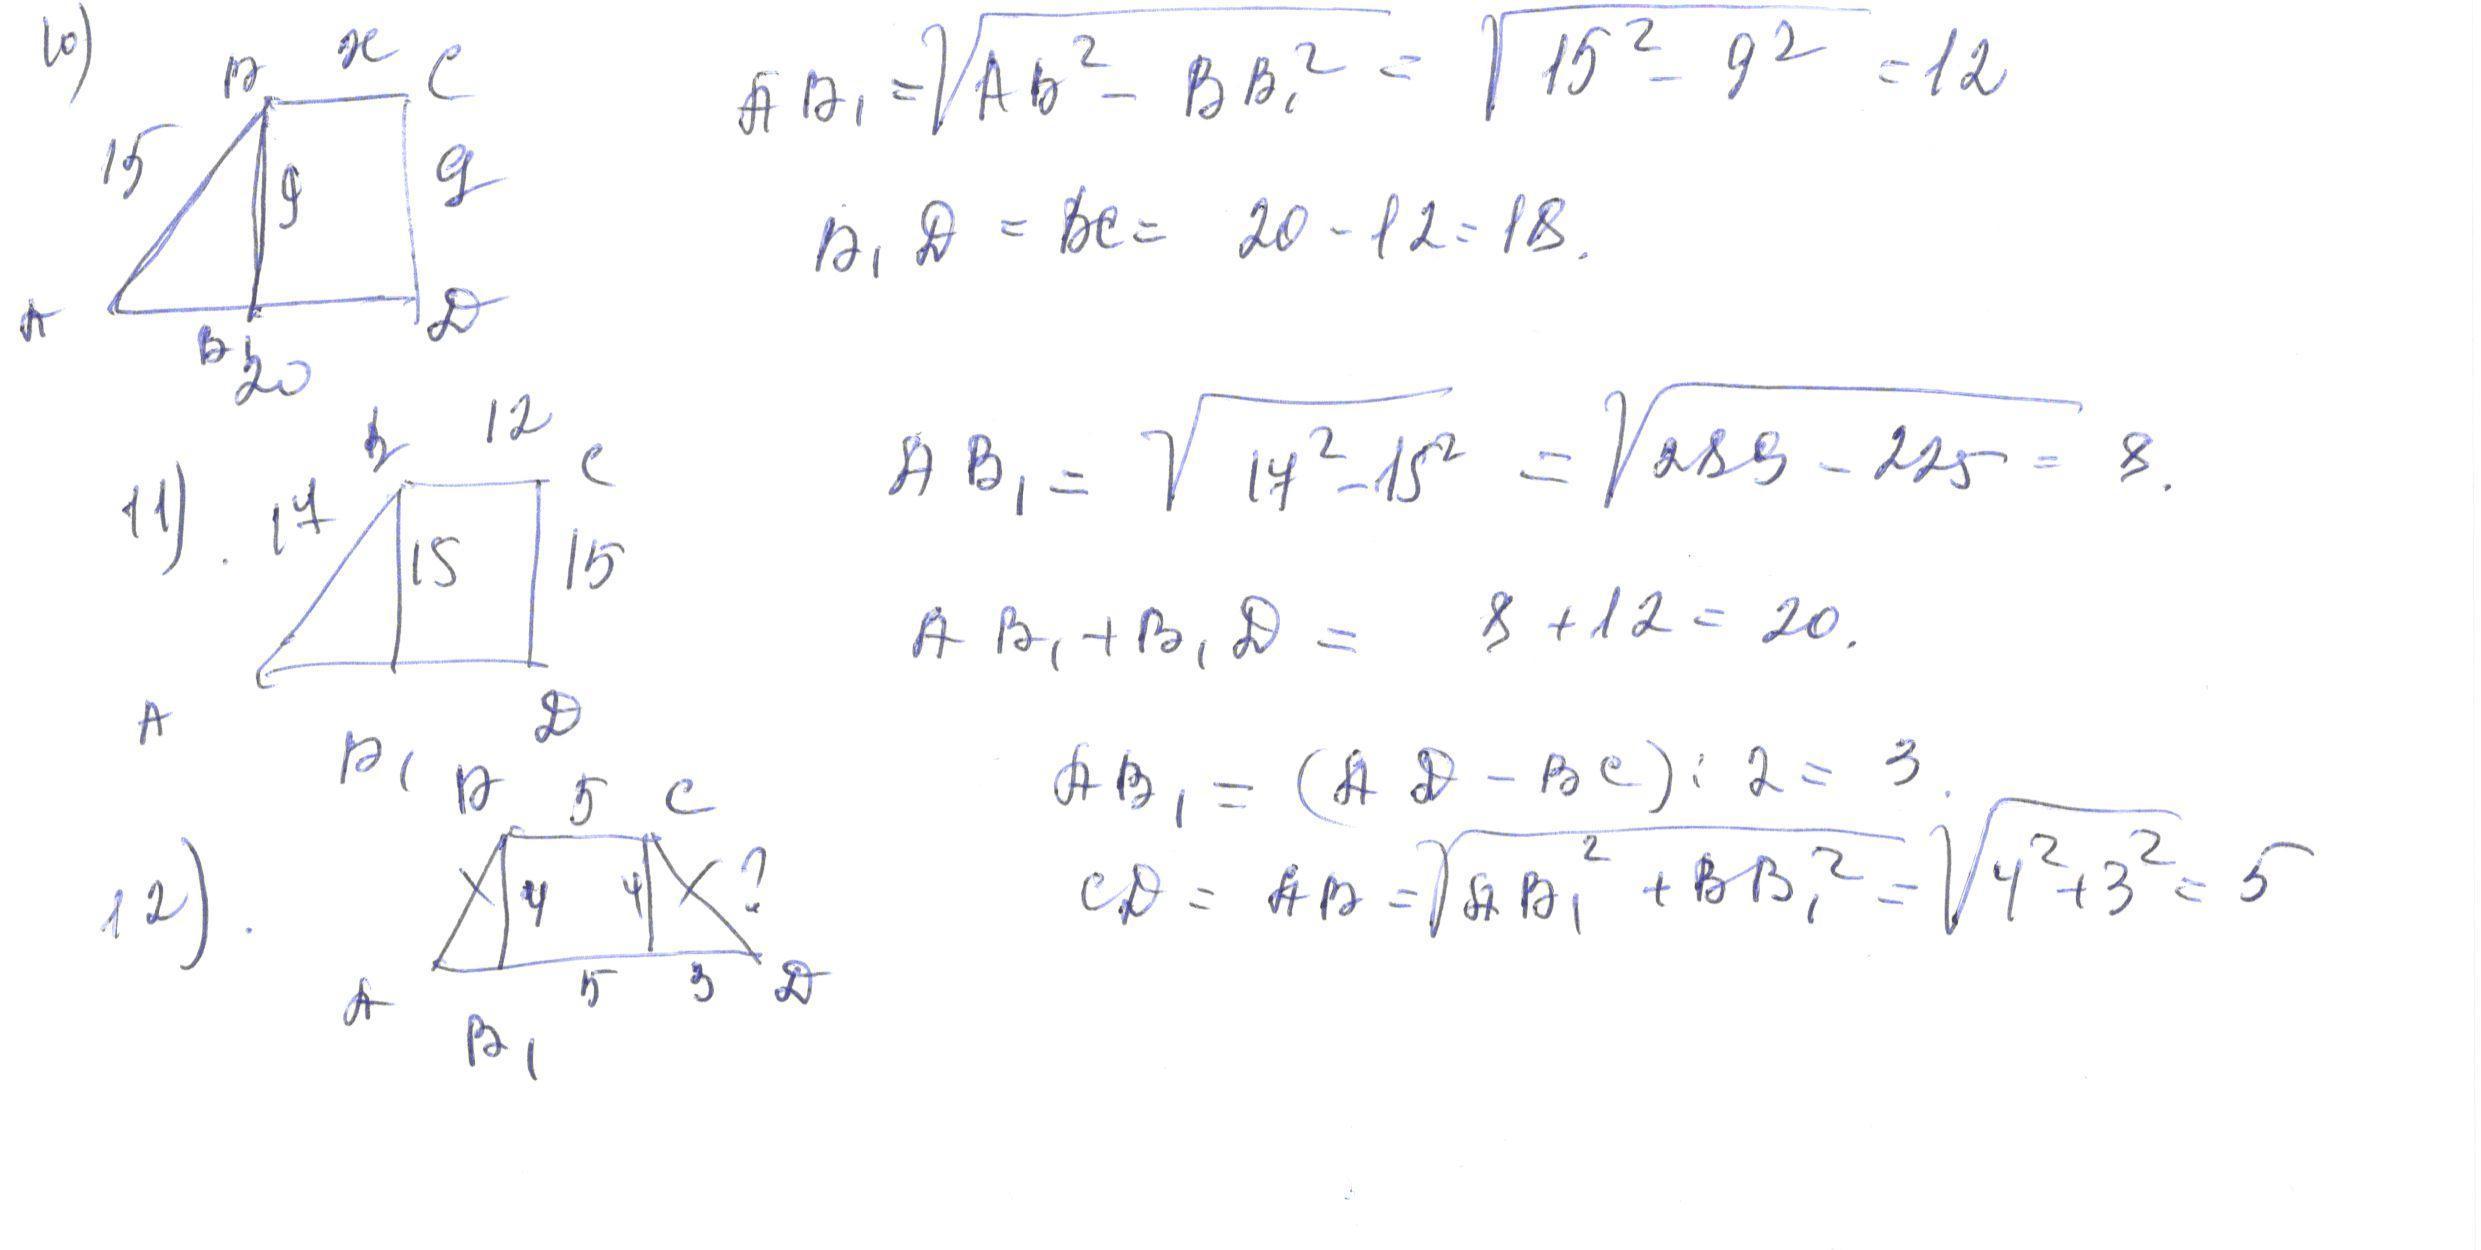 10)
B x C
15 9 9
A B₁ D
20
AB₁ = √(AB² - BB₁²) = √(15² - 9²) = 12
B₁D = BC = 20 - 12 = 18.
11).
B 12 C
17 15 15
A B₁ D
AB₁ = √(17² - 15²) = √(289 - 225) = 8.
AB₁ + B₁D = 8 + 12 = 20.
12).
B 5 C
4 4 ?
A 5 3 D
B₁
AB₁ = (AD - BC) : 2 = 3.
CD = AB = √(AB₁² + BB₁²) = √(4² + 3²) = 5